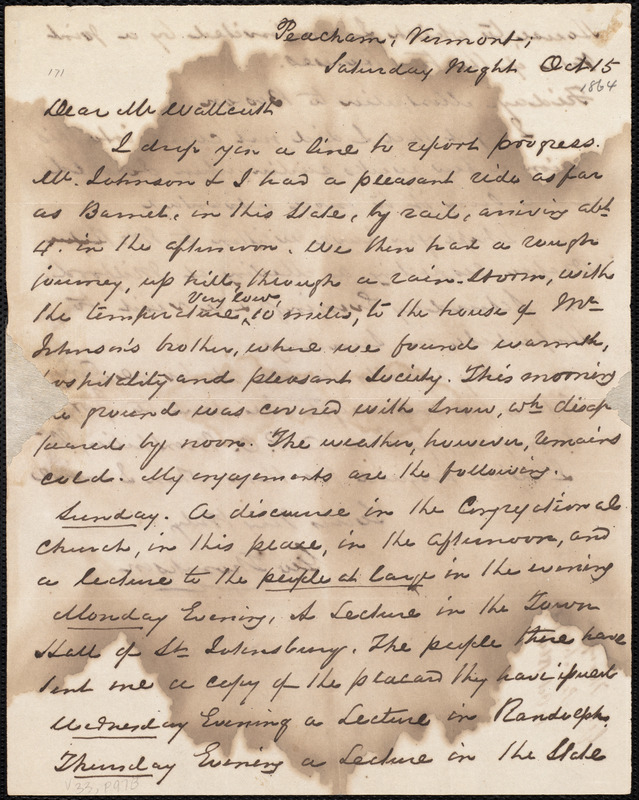 Peacham, Vermont,
171
Saturday Night Oct 15
1864
Dear Mr Wallcutt
I drop you a line to report progress.
Mr. Johnson & I had a pleasant ride as far
as Barnet, in this State, by rail, arriving abt
4. in the afternoon. We then had a rough
journey, up hill, through a rain-storm, with
very low,
the temperature 10 miles, to the house of Mr
Johnson's brother, where we found warmth,
hospitality and pleasant Society. This morning
the ground was covered with snow, wh disap
peared by noon. The weather, however, remains
cold. My engagements are the following.
Sunday. A discourse in the Congregational
Church, in this place, in the afternoon, and
a lecture to the people at large in the evening
Monday Evening, A Lecture in the Town
Hall of St Johnsbury. The people there have
sent me a copy of the placard they have issued
Wednesday Evening a Lecture in Randolph.
Thursday Evening a Lecture in the State
V.33, P.97B